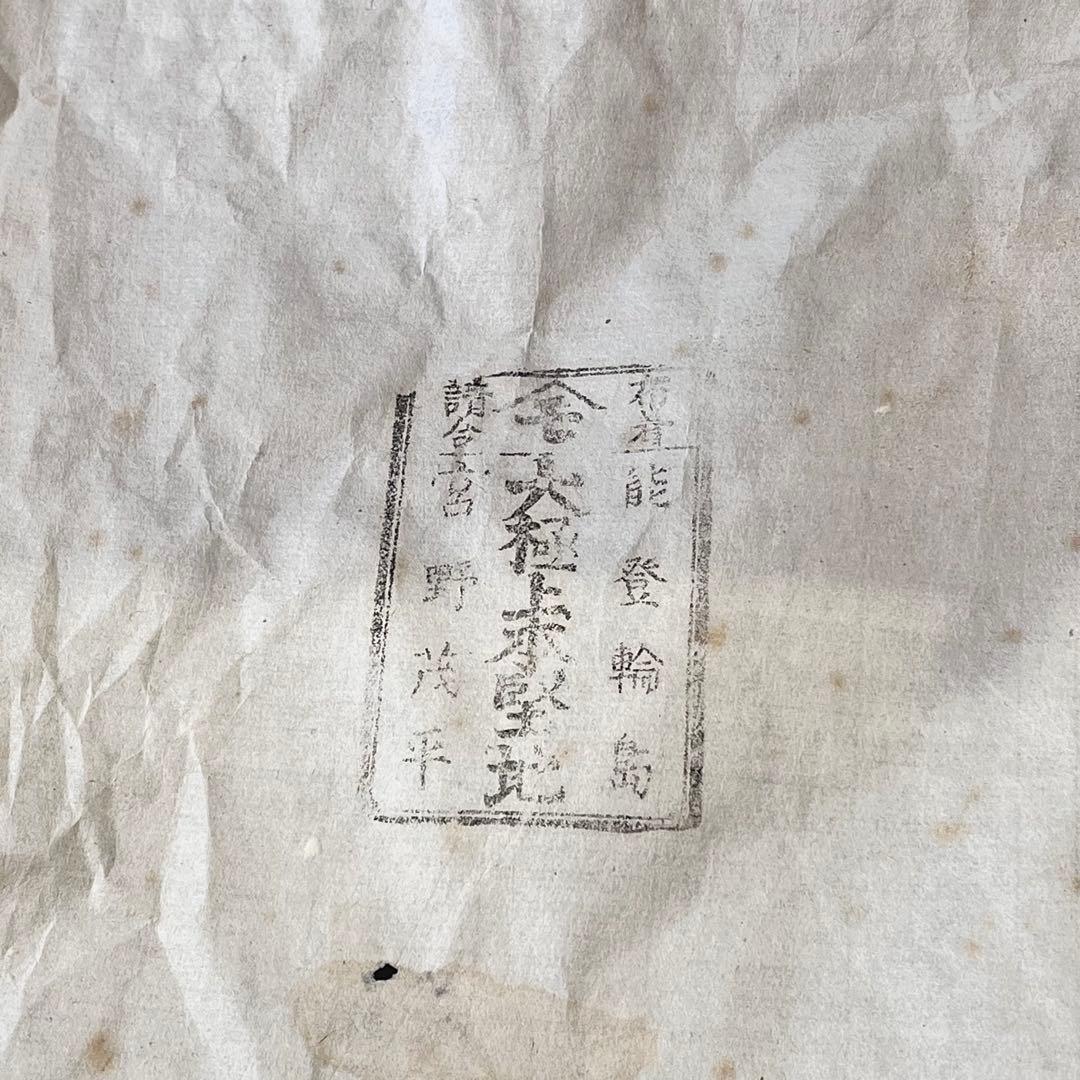 布着
能登輪島
大極上本堅地
請合
野茂平